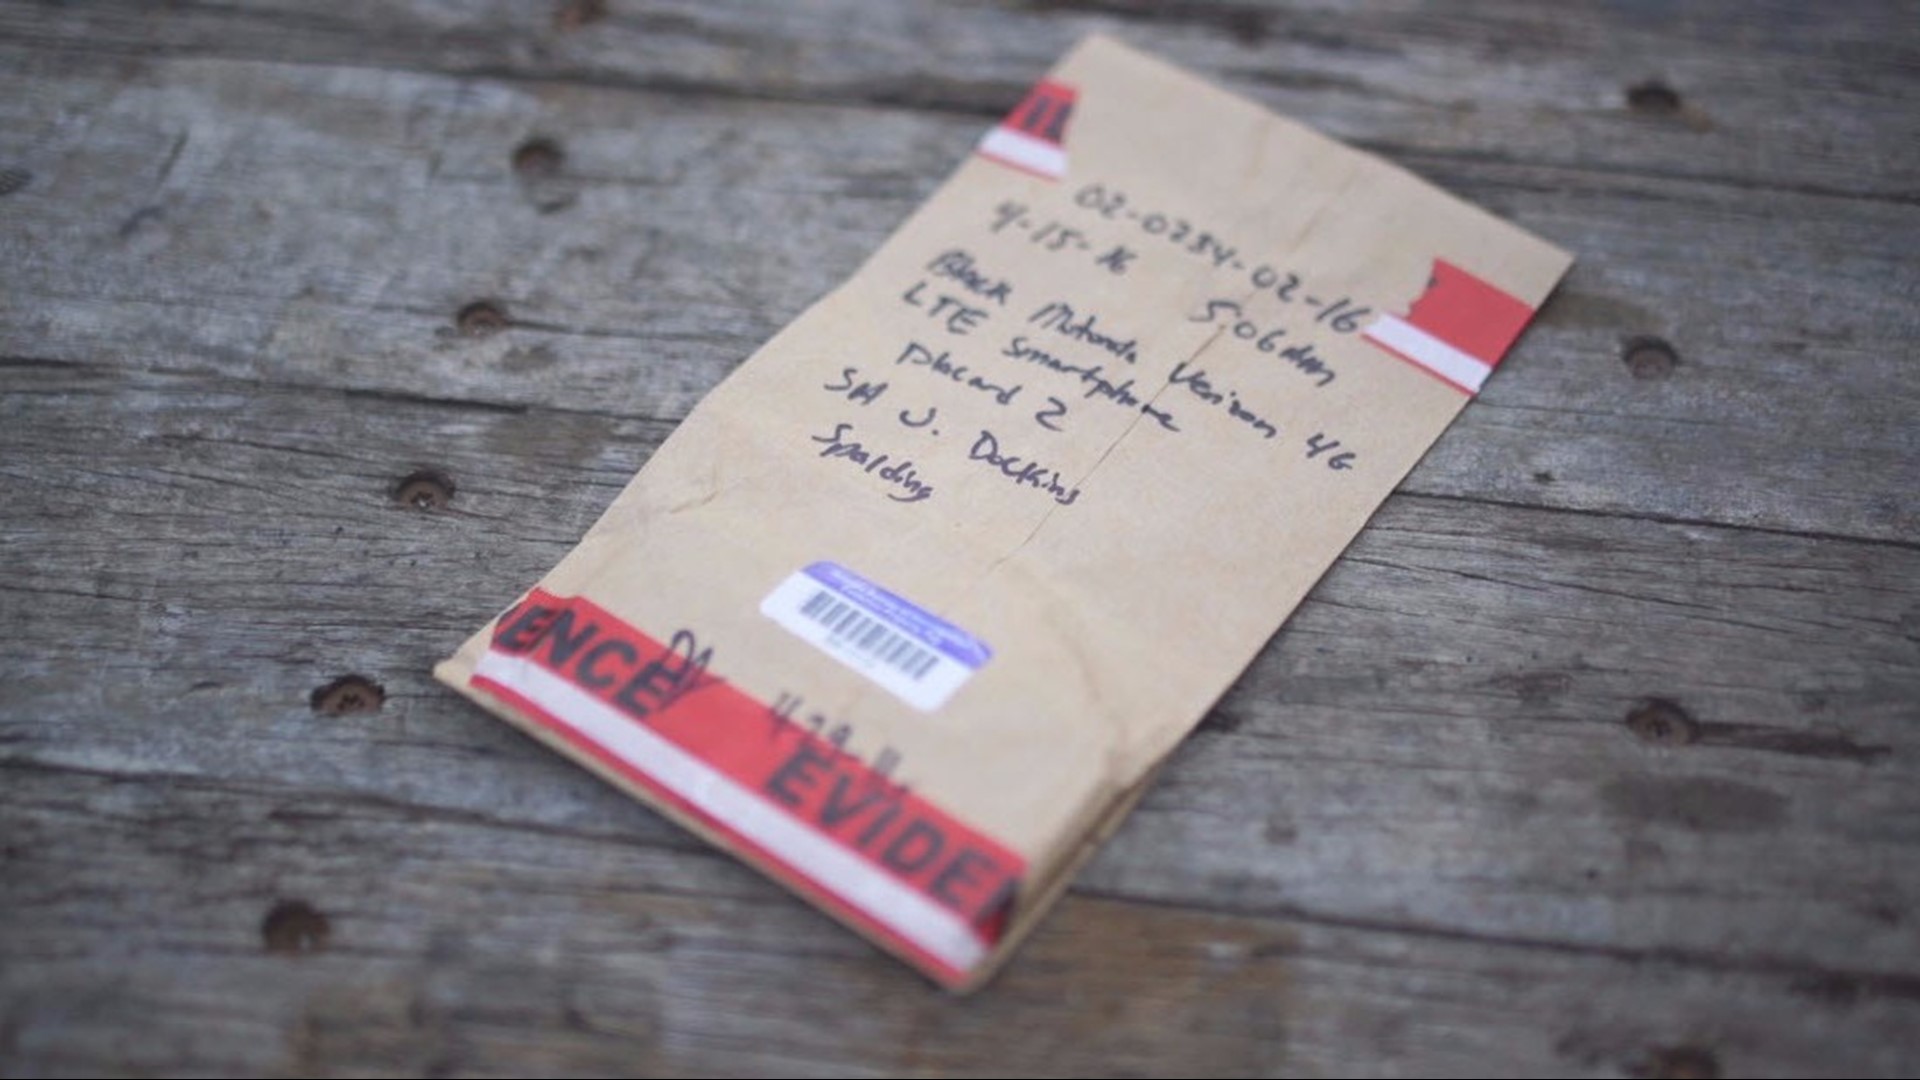 02-0234-02-16
4-15-16 5:06am
Black Motorola Verizon 4G
LTE Smartphone
Placard 2
SA J. Dockins
Spalding
ENCE
EVIDEN